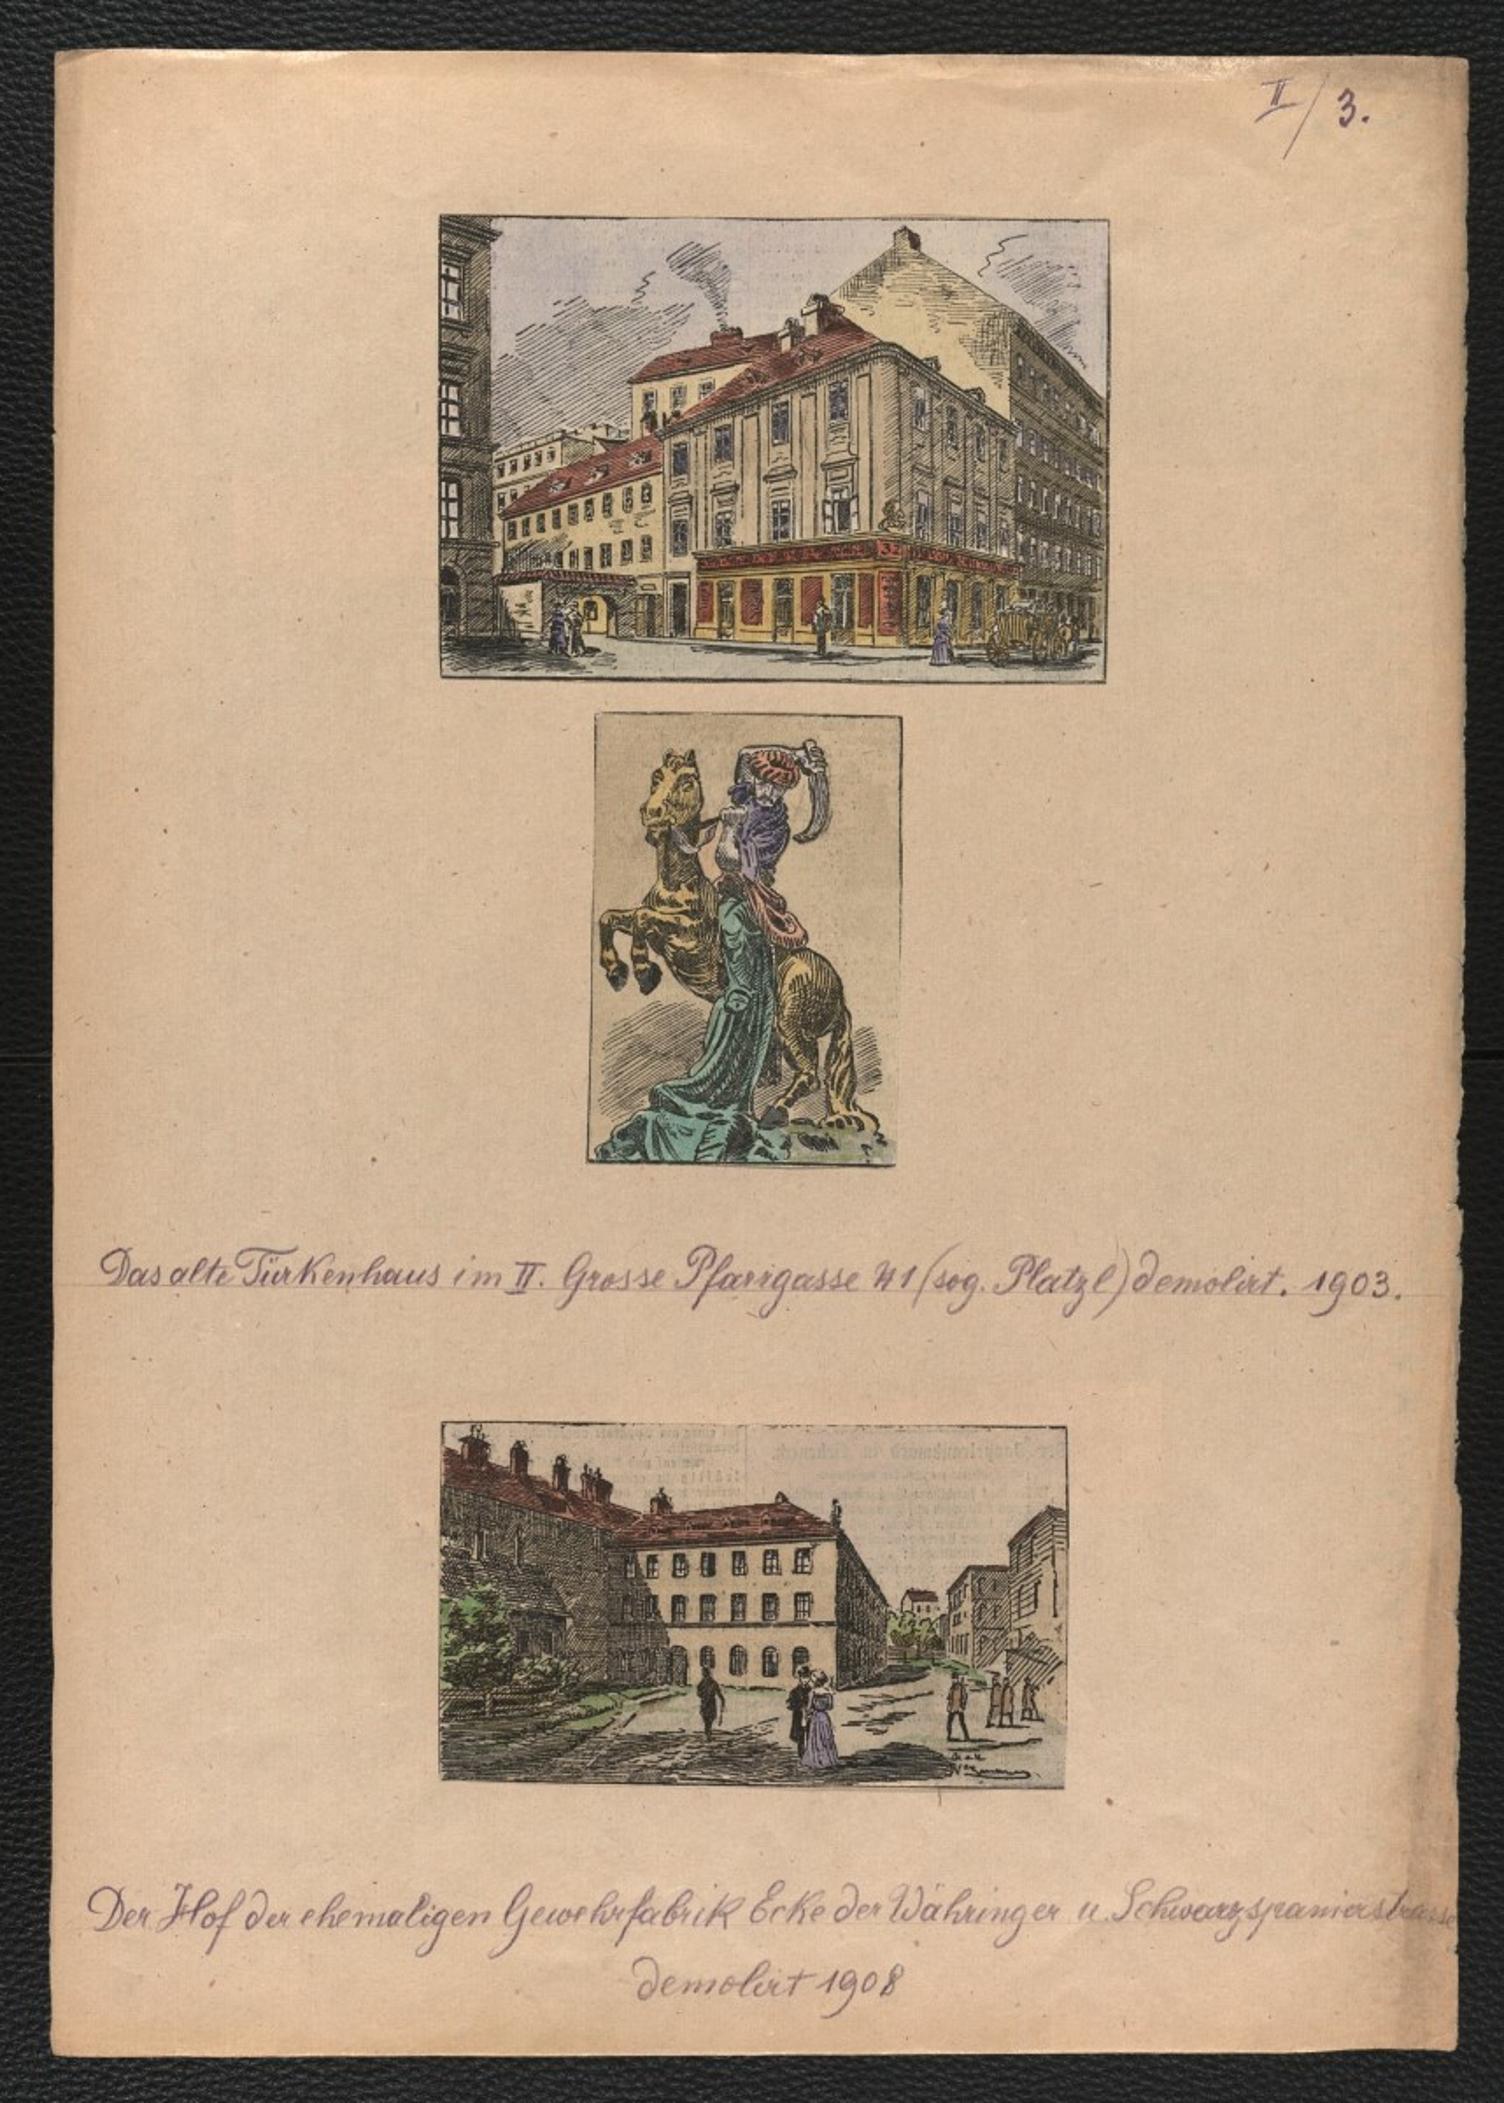 II/3.
32
Das alte Türkenhaus im II. Grosse Pfarrgasse 41 (sog. Platzl) demolirt. 1903.
Der Hof der ehemaligen Gewehrfabrik Ecke der Währinger u. Schwarzspanierstrasse
demolirt 1908